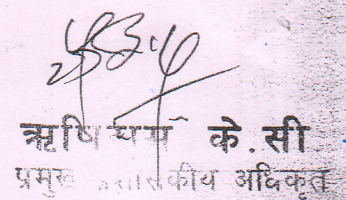 ऋषि के.सी
प्रमुख प्रशासकीय अधिकृत